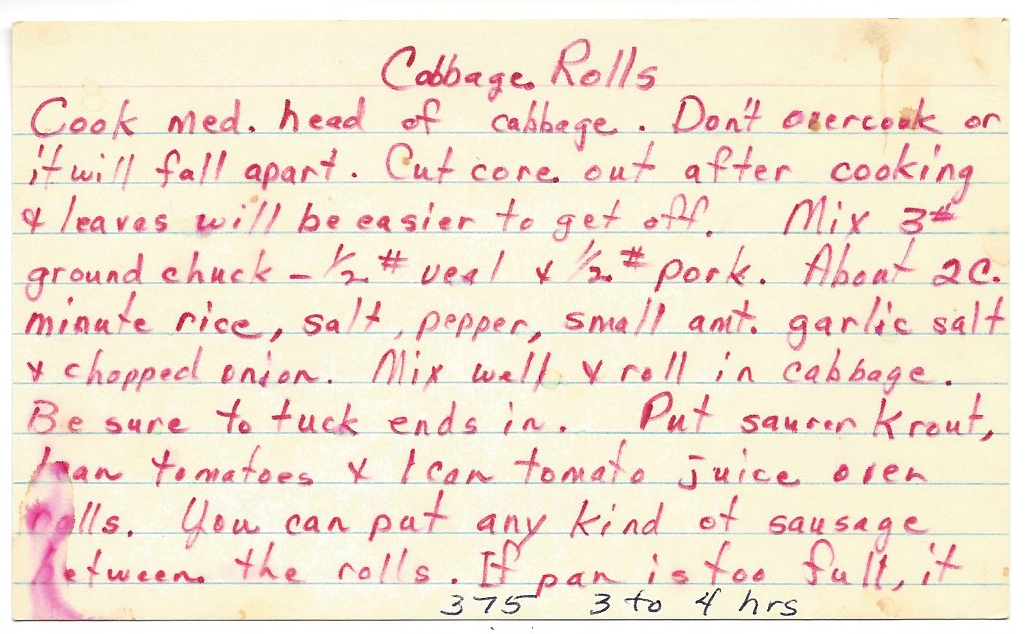 Cabbage Rolls
Cook med. head of cabbage. Don't overcook or
it will fall apart. Cut core out after cooking
& leaves will be easier to get off. Mix 3#
ground chuck - 1/2 # veal & 1/2 # pork. About 2C.
minute rice, salt, pepper, small amt. garlic salt
& chopped onion. Mix well & roll in cabbage.
Be sure to tuck ends in. Put sauer Kraut,
1 can tomatoes & 1 can tomato juice over
rolls. You can put any kind of sausage
between the rolls. If pan is too full, it
375 3 to 4 hrs